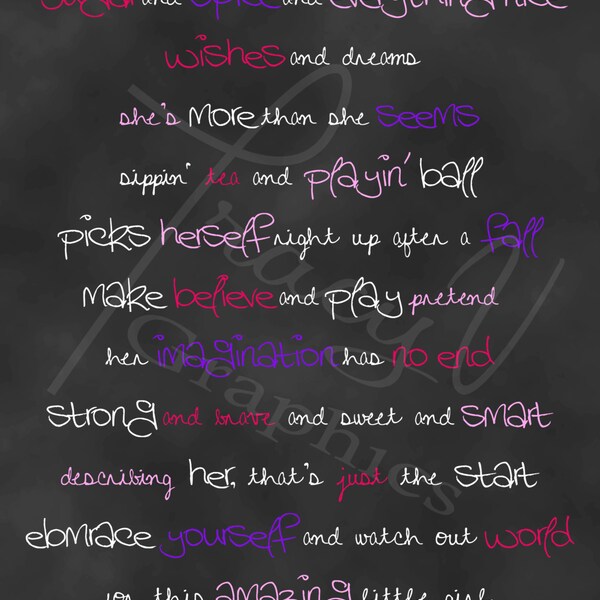 sugar and spice and everything nice
wishes and dreams
she's more than she seems
sippin' tea and playin' ball
picks herself right up after a fall
make believe and play pretend
her imagination has no end
strong and brave and sweet and smart
describing her, that's just the start
ebmrace yourself and watch out world
for this amazing little girl
Tracy V
Graphics